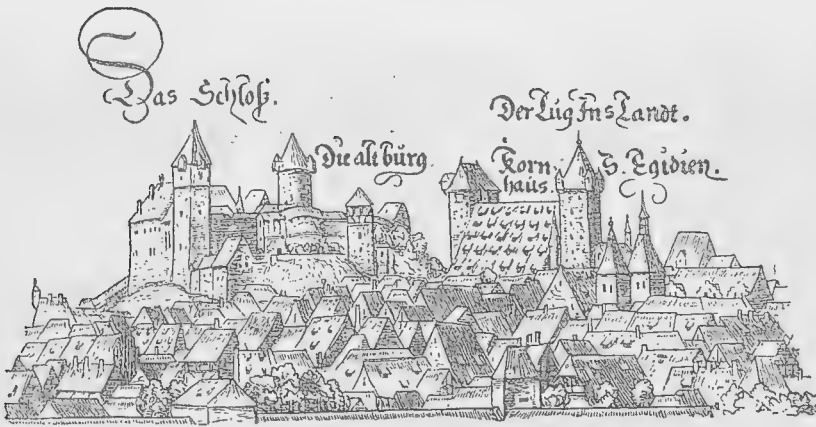 Das Schloß.
Die alt bůrg.
Der Lug Ins Landt.
Korn-
haůs.
S. Egidien.